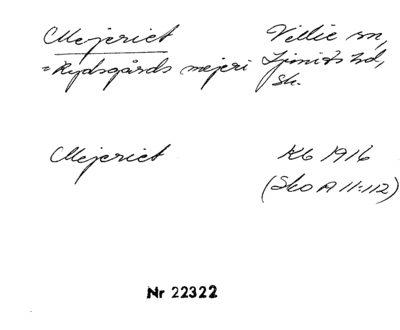 Mejeriet Villie sn,
= Rydsgårds mejeri Ljunits hd,
Sk.
Mejeriet Kb 1916
(Sko A 11:112)
Nr 22322